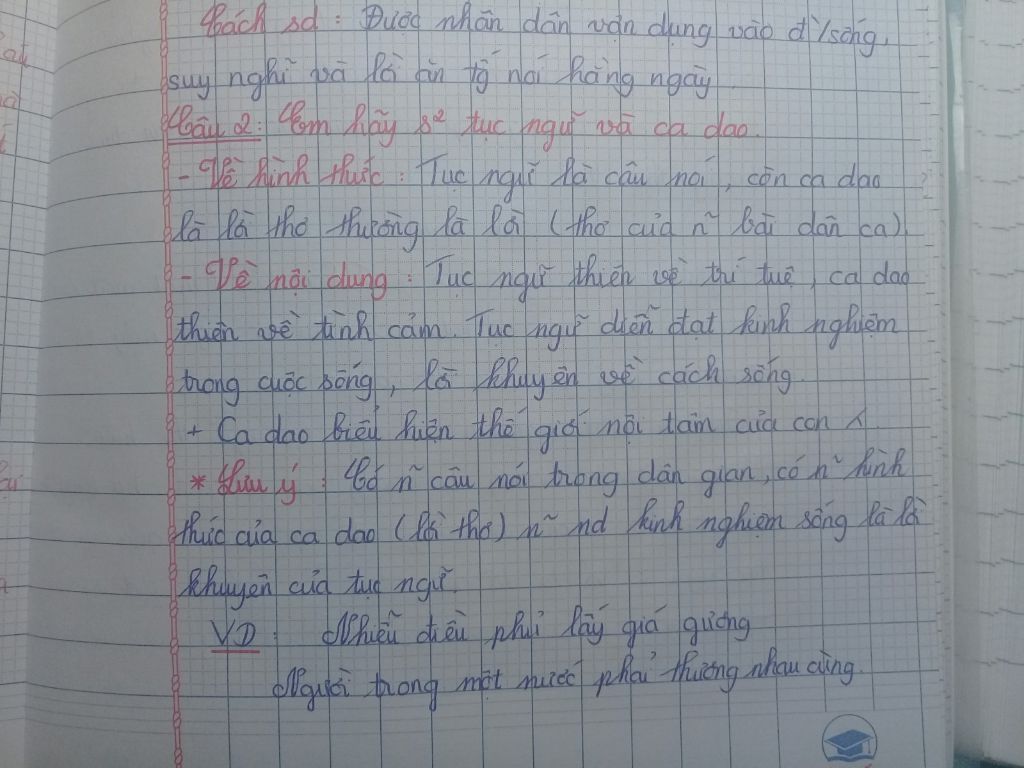 Cách sd : Được nhân dân vận dụng vào đ/sống,
suy nghĩ và là ăn tg nói hằng ngày
Câu 2 : Em hãy s² tục ngữ và ca dao.
- Về hình thức : Tục ngữ là câu nói, còn ca dao
là lời thơ thường là lời (thơ của n~ bài dân ca).
- Về nội dung : Tục ngữ thiên về trí tuệ, ca dao
thiên về tình cảm. Tục ngữ diễn đạt kinh nghiệm
trong cuộc sống, lời khuyên về cách sống
+ Ca dao biểu hiện thế giới nội tâm của con
* Lưu ý : Có n~ câu nói trong dân gian, có n~ hình
thức của ca dao (lời thơ) n~ nd kinh nghiệm sống là lời
khuyên của tục ngữ.
VD : Nhiễu điều phủ lấy giá gương
Người trong một nước phải thương nhau cùng.